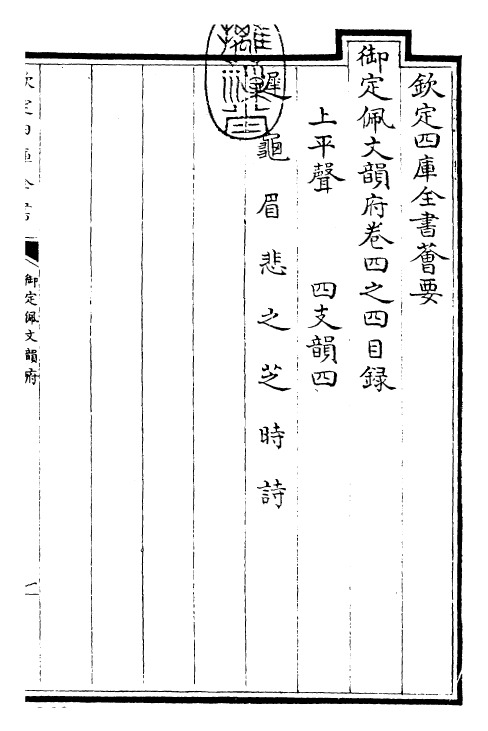 欽定四庫全書薈要
御定佩文韻府卷四之四目録
上平聲　四支韻四
遲　龜　眉　悲　之　芝　時　詩
御定佩文韻府
一